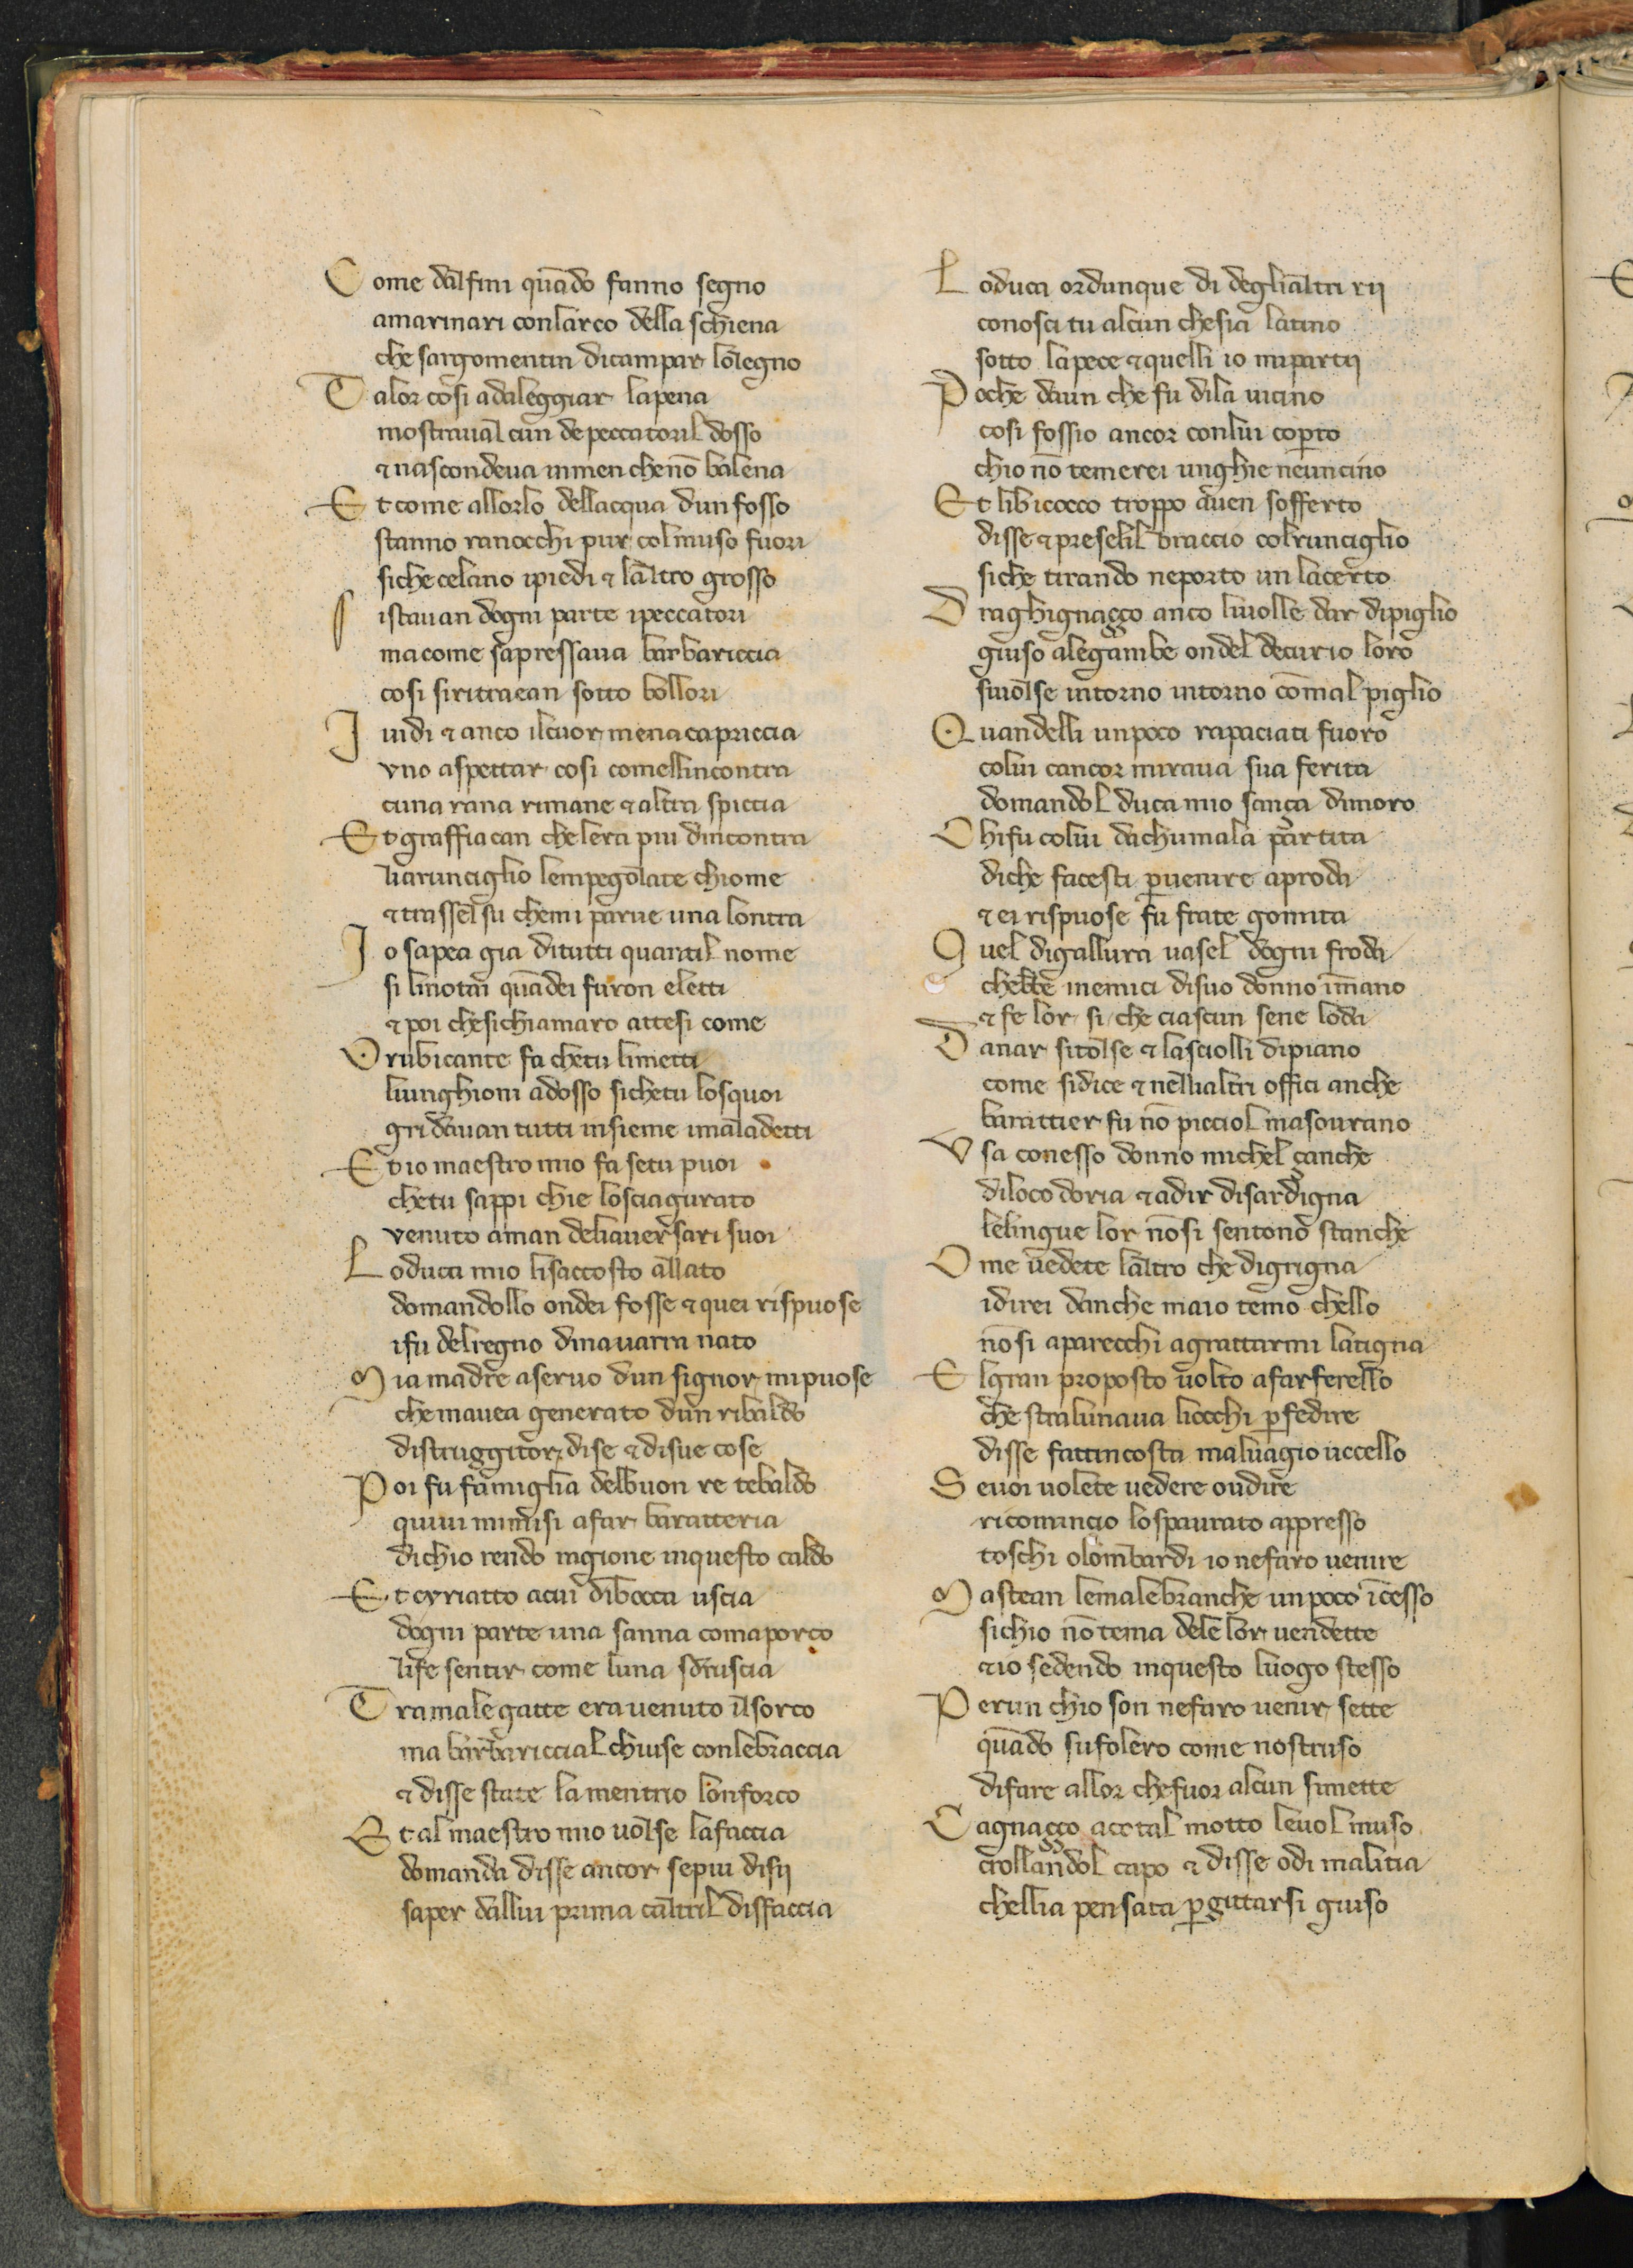 Come dalfini quādo fanno segno
amarinari conlarco della schiena
che sargomentin dicampar lolegno
Talor cosi adaleggiar lapena
mostraualcun depeccatoril dosso
⁊ nascondeua inmen chenō balena
Et come allorlo dellacqua dunfosso
stanno ranocchi pur colmuso fuori
siche celano ipiedi ⁊ laltro grosso
Sistauan dogni parte ipeccatori
macome sapressaua barbariccia
cosi siritraean sotto bollori
Iuidi ⁊ anco ilcuor menacapriccia
vno aspettar cosi comellincontra
cuna rana rimane ⁊ altra spiccia
Et graffiacan chelera piu dincontra
liarunciglio lempegolate chiome
⁊ trasselsu chemi parue una lontra
Io sapea gia ditutti quantil nome
si linotai quādei furon eletti
⁊ poi chesichiamaro attesi come
O rubicante fa chetu limetti
liunghioni adosso sichetu loscuoi
gridauan tutti insieme imaladetti
Et io maestro mio fa setu puoi
chetu sappi chie losciagurato
venuto aman deliauersari suoi
Loduca mio lisaccosto allato
domandollo ondei fosse ⁊ quei rispuose
ifu delregno dinauarra nato
Mia madre aseruo dun signor mipuose
chemauea generato dun ribaldo
distruggitor dise ⁊ disue cose
Poi fu famiglia delbuon re tebaldo
quiui mimisi afar baratteria
dichio rendo ragione inquesto caldo
Et cyriatto acui dibocca uscia
dogni parte una sanna comaporco
life sentir come luna sdruscia
Tramale gatte era venuto ilsorco
ma barbaricciail chiuse conlebraccia
⁊ disse state la mentrio lonforco
Et al maestro mio uolse lafaccia
domanda disse ancor sepiu disij
saper dallui prima caltril disfaccia
Loduca ordunque di deglialtri rij
conosci tu alcun chesia latino
sotto lapece ⁊ quelli io mipartij
Poche daun che fu dila uicino
cosi fossio ancor conlui coperto
chio nō temerei unghie neuncino
Et libicocco troppo auen sofferto
disse ⁊ preselil braccio colrunciglio
siche tirando neporto un lacerto
Draghignaçço anco liuolle dar dipiglio
giuso alegambe ondel decurio loro
siuolse intorno intorno cōmal piglio
Quandelli unpoco rapaciati fuoro
colui cancor miraua sua ferita
domandol duca mio sança dimoro
Chifu colui dachumala partita
diche facesti puenire aproda
⁊ ei rispuose fu frate gomita
Quel digallura uasel dogni froda
chebbe inemici disuo donno īmano
⁊ fe lor si che ciascun sene loda
Danar sitolse ⁊ lasciolli dipiano
come sidice ⁊ nellialtri offici anche
barattier fu nō picciol masourano
Vsa conesso donno michel çanche
dilocodoria ⁊ adir disardigna
lelingue lor nōsi sentono stanche
Ome uedete laltro che digrigna
idirei danche maio temo chello
nōsi aparecchi agrattarmi latigna
Elgran proposto uolto afarferello
che stralunaua liocchi pfedire
disse fattincosta maluagio uccello
Seuoi uolete uedere oudire
ricomincio lospaurato appresso
toschi olombardi io nefaro uenire
Mastean lemalebranche unpoco īcesso
sichio nō tema dele lor uendette
⁊ io sedendo inquesto luogo stesso
Perun chio son nefaro uenir sette
quādo sufolero come nostruso
difare allor chefuor alcun simette
Cagnaçço acotal motto leuol muso
crollandol capo ⁊ disse odi malitia
chellia pensata pgittarsi giuso